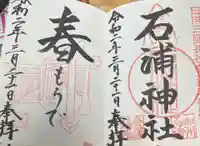 石浦神社
令和二年三月二十二日奉拝
春もうで
令和二年三月二十二日奉拝